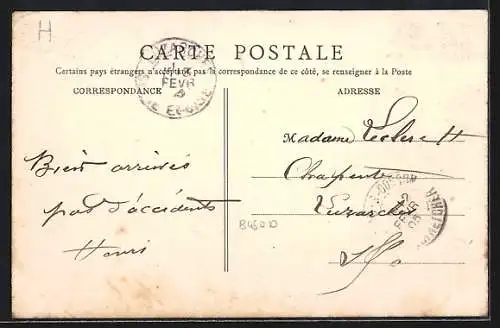 H
CARTE POSTALE
Certains pays étrangers n'acceptent pas la correspondance de ce côté, se renseigner à la Poste
CORRESPONDANCE
ADRESSE
FEVR
Bien arrivés
pas d'accidents
Henri
Madame Leclerc H
Charpente
Luzarches
B45010